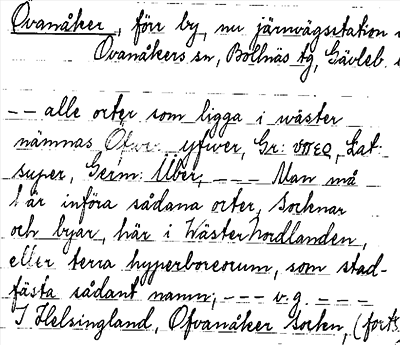 Ovanåker, förr by, nu järnvägsstation
Ovanåkers sn, Bollnäs tg, Gävleb.
-- alle orter som ligga i wäster
nämnas Ofwer yfwer, Gr: υπερ, Lat:
super, Germ: Über, --- Man må
här införa sådana orter, Socknar
och byar, här i WästerNordlanden,
eller terra hyperboreorum, som stad-
fästa sådant namn; --- v.g. ---
I Helsingland, Ofvanåker Socken, (forts.